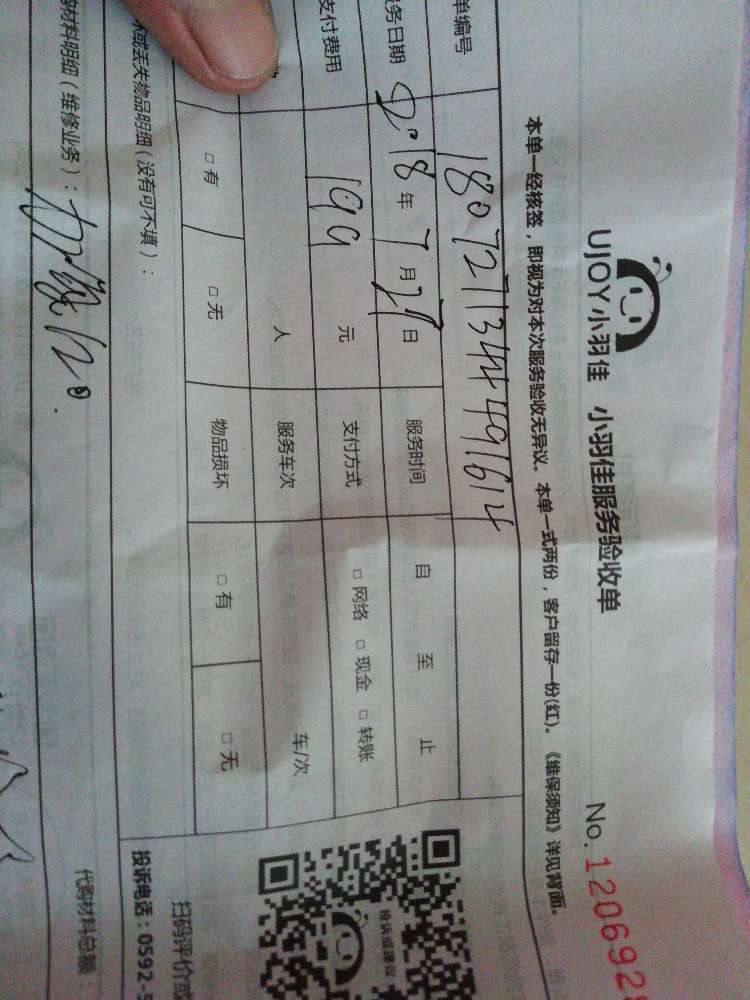 UJOY小羽佳 小羽佳服务验收单 No.120692
本单一经核签，即视为对本次服务验收无异议。本单一式两份，客户留存一份(红)。《维保须知》详见背面。
单编号
服务日期 2018年7月27日 服务时间 自 至 止
支付费用 199元 支付方式 □网络 □现金 □转账
人 服务车次 车/次
□有 □无 物品损坏 □有 □无
或丢失物品明细（没有可不填）：
购材料明细（维修业务）： 代购材料总额：
投诉或建议
扫码评价或
投诉电话：0592-5